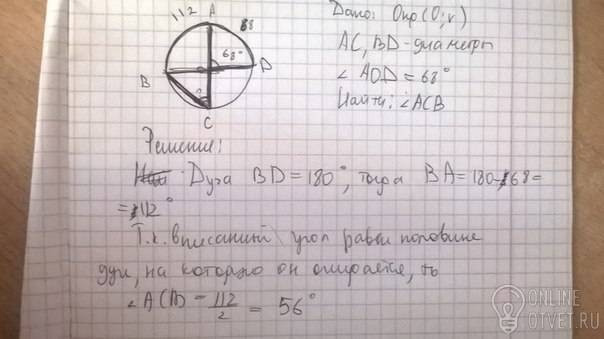 112 A 68
68°
B D
C
Дано: Окр (O; r)
AC, BD - диаметры
∠ AOD = 68°
Найти: ∠ACB
Решение:
Дуга BD = 180°, тогда BA = 180-68=
= 112°
Т.к. вписаный угол равен половине
дуги, на которую он опирается, то
∠ACB = 112/2 = 56°
ONLINE
OTVET.RU